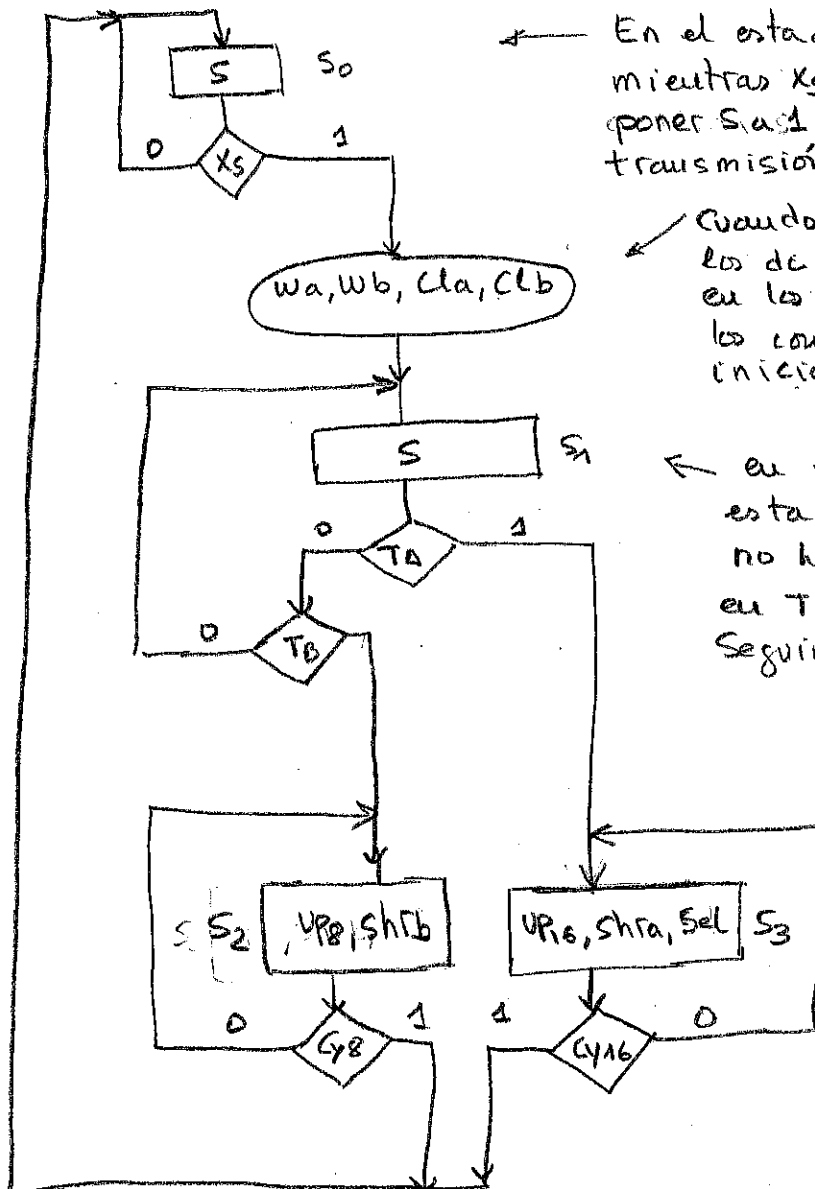 S S0
← En el esta
mientras Xs
poner S a 1
transmisión
0 XS 1
Cuando
los da
en los
los con
inicio
Wa, Wb, Cla, Clb
S S1
← en
esta
no h
en T
Seguir
0 TA 1
0 TB
S2 , UP8, Shrb
UP16, Shra, Sel S3
0 Cy8 1
1 Cy16 0